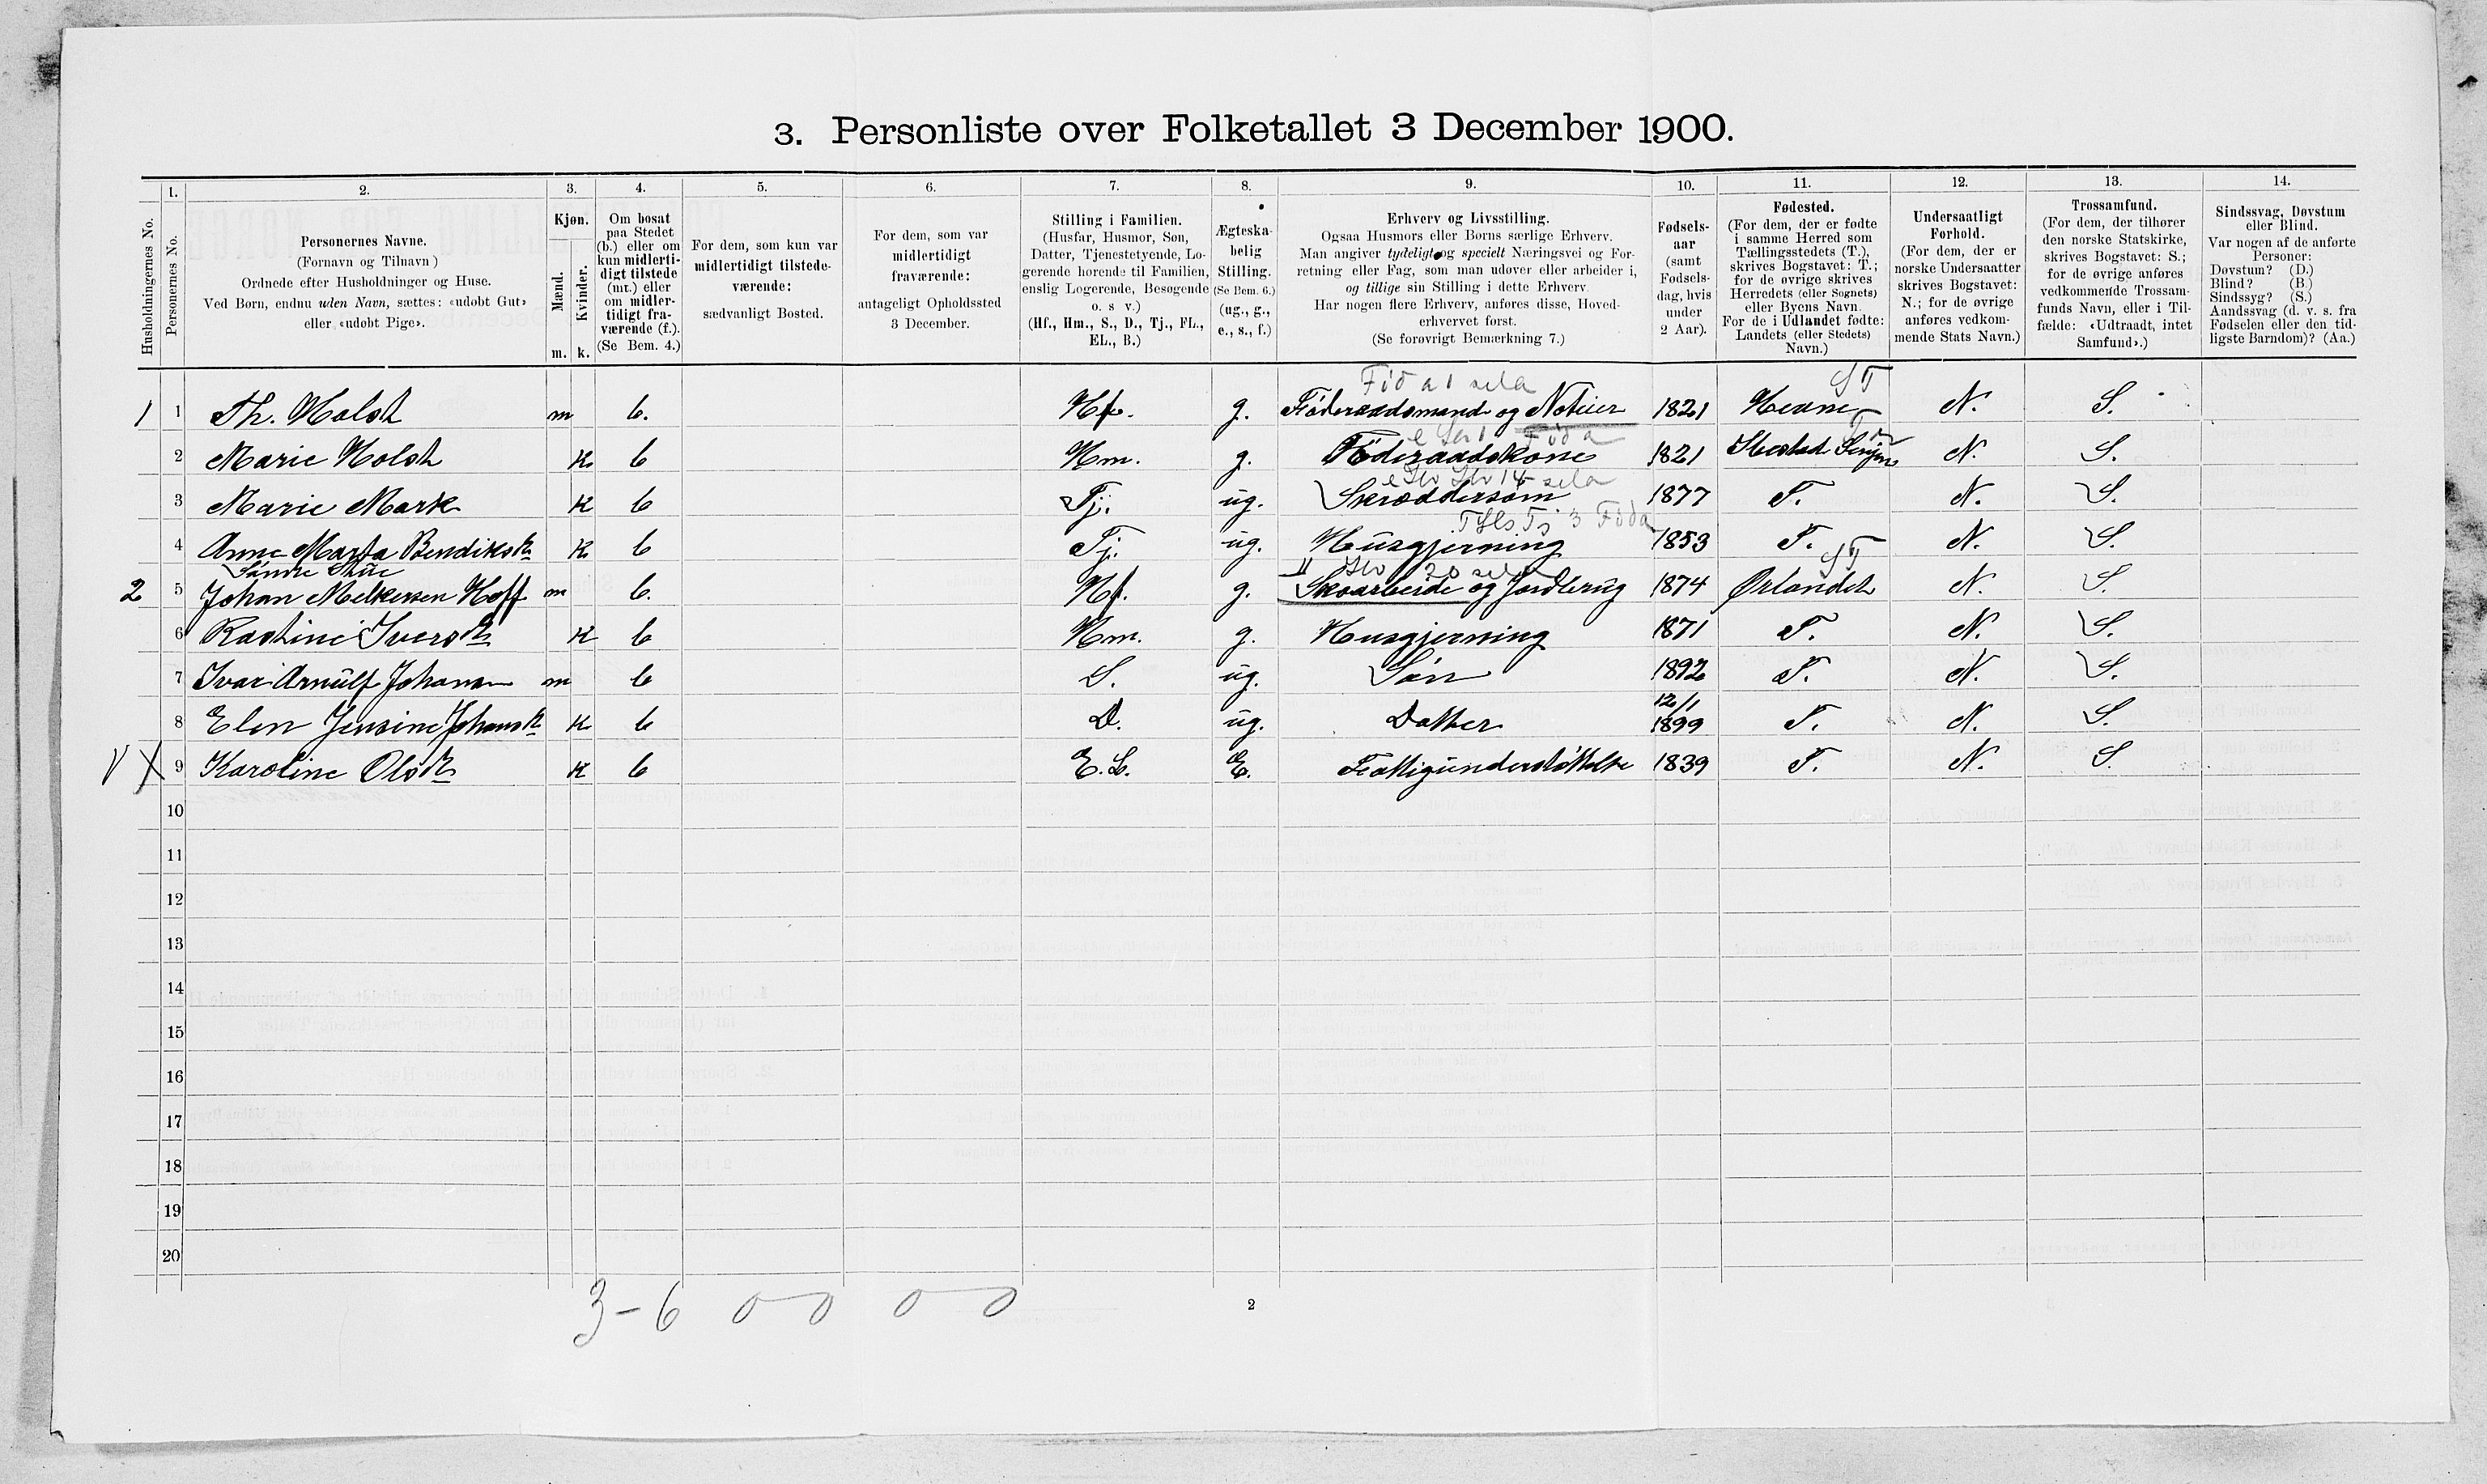 3. Personliste over Folketallet 3 December 1900.
Husholdningernes No.
1.
Personernes No.
2.
Personernes Navne.
(Fornavn og Tilnavn )
Ordnede efter Husholdninger og Huse.
Ved Børn, endnu uden Navn, sættes: «udøbt Gut»
eller «udøbt Pige».
3.
Kjøn.
Mænd.
Kvinder.
m. k.
4.
Om bosat
paa Stedet
(b.) eller om
kun midlerti-
digt tilstede
(mt.) eller
om midler-
tidigt fra-
værende (f.).
(Se Bem. 4.)
5.
For dem, som kun var
midlertidigt tilstede-
værende:
sædvanligt Bosted.
6.
For dem, som var
midlertidigt
fraværende:
antageligt Opholdssted
3 December.
7.
Stilling i Familien.
(Husfar, Husmor, Søn,
Datter, Tjenestetyende, Lo-
gerende hørende til Familien,
enslig Logerende, Besøgende
o. s v.)
(Hf., Hm., S., D., Tj., FL.,
EL., B.)
8.
Ægteska-
belig
Stilling.
(Se Bem. 6.)
(ug., g.,
e., s., f.)
9.
Erhverv og Livsstilling.
Ogsaa Husmors eller Børns særlige Erhverv.
Man angiver tydeligt og specielt Næringsvei og For-
retning eller Fag, som man udøver eller arbeider i,
og tillige sin Stilling i dette Erhverv
Har nogen flere Erhverv, anføres disse, Hoved-
erhvervet først.
(Se forøvrigt Bemærkning 7.)
10.
Fødsels-
aar
(samt
Fødsels-
dag, hvis
under
2 Aar).
11.
Fødested.
(For dem, der er fødte
i samme Herred som
Tællingsstedets (T.),
skrives Bogstavet: T.;
for de øvrige skrives
Herredets (eller Sognets)
eller Byens Navn.
For de i Udlandet fødte:
Landets (eller Stedets)
Navn.)
12.
Undersaatligt
Forhold.
(For dem, der er
norske Undersaatter
skrives Bogstavet:
N.; for de øvrige
anføres vedkom-
mende Stats Navn.)
13.
Trossamfund.
(For dem, der tilhører
den norske Statskirke,
skrives Bogstavet: S.;
for de øvrige anføres
vedkommende Trossam-
funds Navn, eller i Til-
fælde: «Udtraadt, intet
Samfund».)
14.
Sindssvag, Døvstum
eller Blind.
Var nogen af de anførte
Personer:
Døvstum? (D.)
Blind? (B.)
Sindssyg? (S.)
Aandssvag (d. v. s. fra
Fødselen eller den tid-
ligste Barndom)? (Aa.)
ST
1 1 Th. Holst m b. Hf. g. Føderaadsmand og 1821 Hevne N. S.
2 Marie Holst k b Hm. g. Føderaadskone 1821 N. S.
3 Marie Mark k b Tj. ug. Skræddersøm 1877 T. N. S.
4 Anne Marta Bendiksdt. k b Tj. ug. Husgjerning 1853 T. N. S.
Søndre Stue ST
2 5 Johan Melkersen Hoff m b. Hf. g. Skoarbeide og Jordbrug 1874 Ørlandet N. S.
6 Rastine Iversdt. k b Hm. g. Husgjerning 1871 T. N. S.
7 Ivar Arnulf Johansen m b S. ug. Søn 1892 T. N. S.
12/1
8 Elen Jensine Johansdt. k b D. ug. Datter 1899 T. N. S.
V X 9 Karoline Olsdt. k b E.L. E. Fattigunderstøttelse 1839 T. N. S.
10
11
12
13
14
15
16
17
18
19
20
3-6 0-0 0-0
2